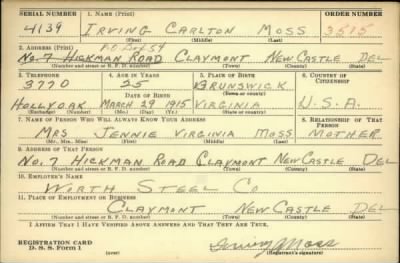 SERIAL NUMBER 1. NAME (Print) ORDER NUMBER
4139 IRVING CARLTON MOSS 3515
(First) (Middle) (Last)
2. ADDRESS (Print) P.O. Box 54
No. 7 HICKMAN ROAD CLAYMONT NEW CASTLE DEL
(Number and street or R. F. D. number) (Town) (County) (State)
3. TELEPHONE 4. AGE IN YEARS 5. PLACE OF BIRTH 6. COUNTRY OF CITIZENSHIP
3770 25 BRUNSWICK
DATE OF BIRTH (Town or county)
HOLLYOAK MARCH 29 1915 VIRGINIA U.S.A.
(Exchange) (Number) (Mo.) (Day) (Yr.) (State or country)
7. NAME OF PERSON WHO WILL ALWAYS KNOW YOUR ADDRESS 8. RELATIONSHIP OF THAT PERSON
MRS JENNIE VIRGINIA MOSS MOTHER
(Mr., Mrs., Miss) (First) (Middle) (Last)
9. ADDRESS OF THAT PERSON
No. 7 HICKMAN ROAD CLAYMONT NEW CASTLE DEL
(Number and street or R. F. D. number) (Town) (County) (State)
10. EMPLOYER'S NAME
WORTH STEEL CO
11. PLACE OF EMPLOYMENT OR BUSINESS
CLAYMONT NEW CASTLE DEL
(Number and street or R. F. D. number) (Town) (County) (State)
I AFFIRM THAT I HAVE VERIFIED ABOVE ANSWERS AND THAT THEY ARE TRUE.
REGISTRATION CARD
D. S. S. Form 1 (over) Irving C Moss
(Registrant's signature)